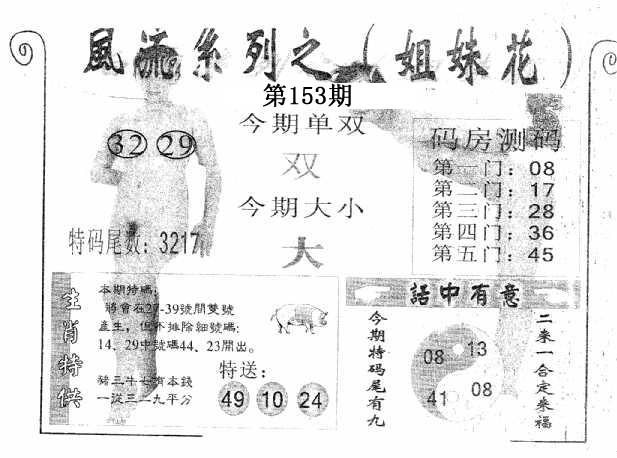 風流系列之（姐妹花）
第153期
32 29
今期单双
双
今期大小
大
特码尾数：3217
码房测码
第一门：08
第二门：17
第三门：28
第四门：36
第五门：45
生肖特供
本期特碼：
將會在27-39號間雙號
產生，但不排除細號碼：
14、29中號碼44、23開出。
豬三牛七有本錢
一從三二九平分
特送：
49 10 24
話中有意
今期特码尾有九
08 13
41 08
二来一合定来福